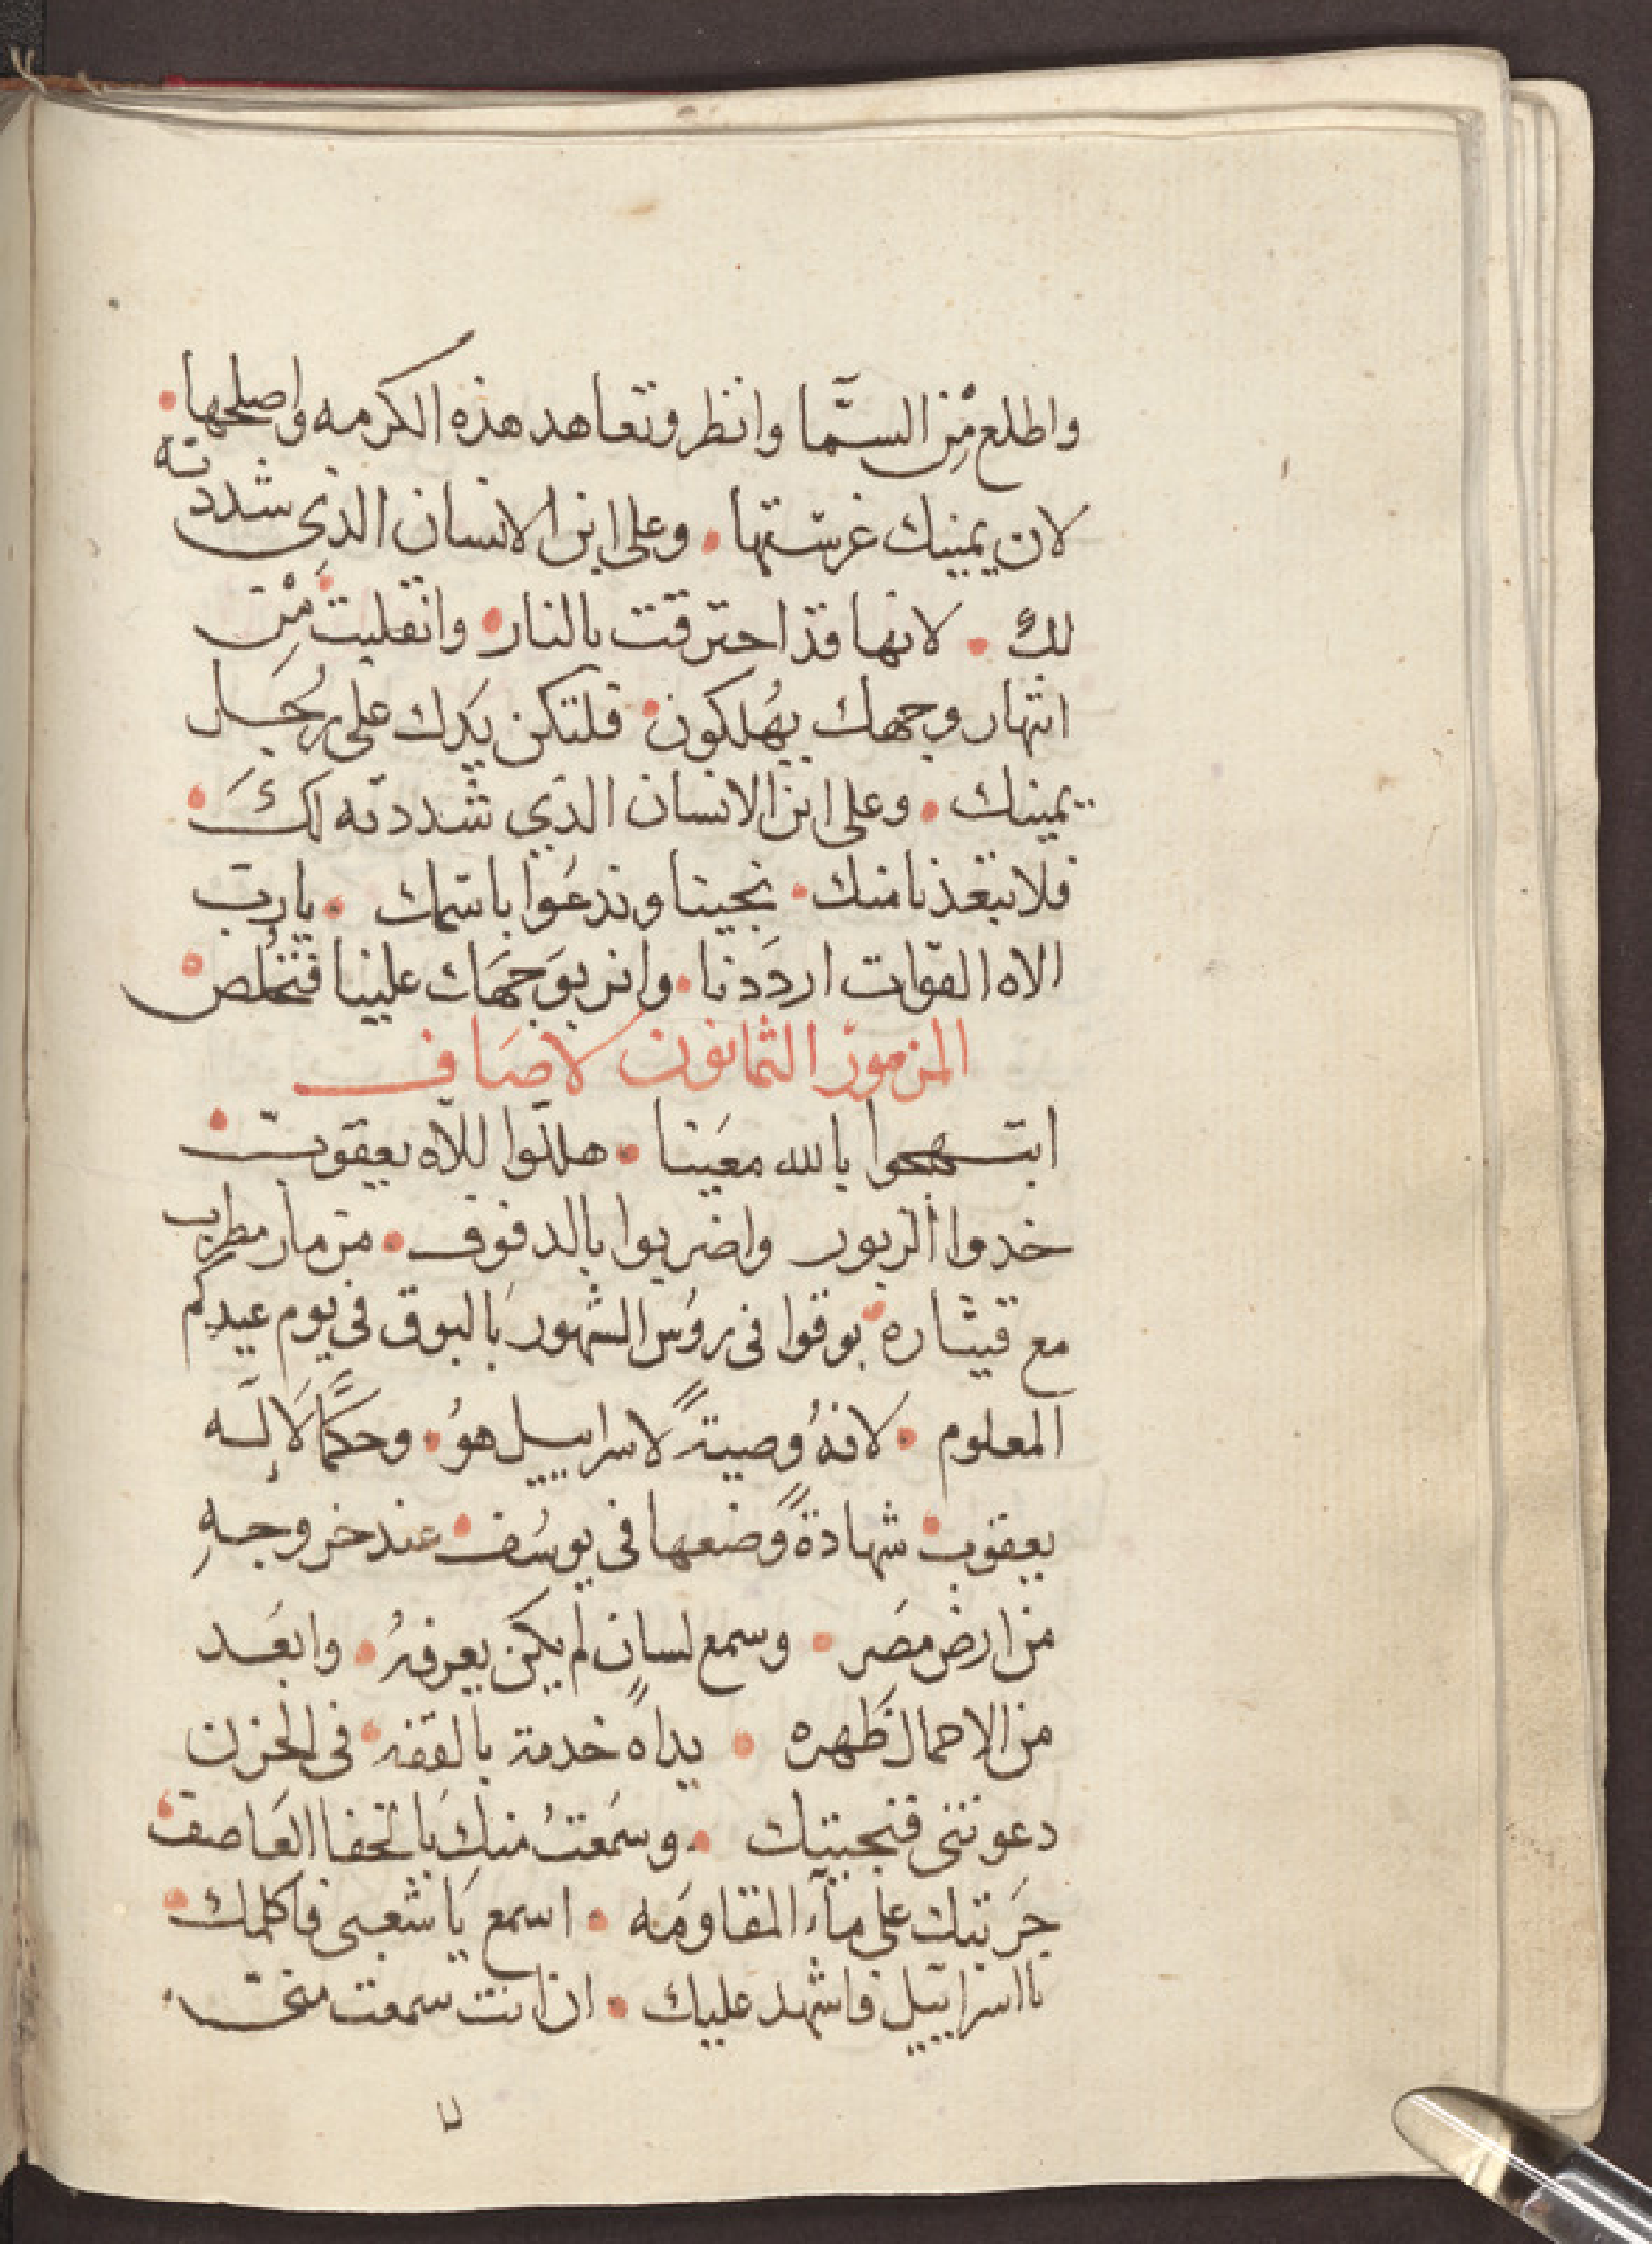 واطلع مِن السمّا وانظر وتعاهد هذه الكرمه واصلحها•
لان يمينك غرستها • وعلى ابن الانسان الذي شددته
لك • لانها قد احترقت بالنار • وانقلبت• مِن
انتهار وجهك يهُلكون• فلتكن يَدك على رجُل
يمينك • وعلى ابن الانسان الذي شددته لكَ•
فلا نبغد نا منك • نجينا وندعُوا باسمك • يارب
الاه القوات ارددنا • وانر بوَجهَك علينا فنخلُص•
المزمور الثمانون لاصَاف
ابتهجوا بالله معَيننا • هللوا للاه يعقوب•
خدوا الزبور واضربوا بالدفوف • مزمار مطرب
مع قيتاره• بوقوا فى روُس الشهور بالبوق فى يوم عيدكم
المعلوم • لانهُ وصيةً لاسراييل هوُ • وحكمًا لَا لِلَه
يعقوب• شهادةً وضعها فى يوسُف• عند خروجهِ
من ارض مصَر • وسمع لسان لم يكن يعرفهُ • وابعَد
من الاحمال ظَهره • يداه خدمة بالقفه• فى الحزن
دعوتنى فنجيتك • وسَمعتُ منكِ بالخفا العَاصف•
جَربتك على مآء المقاومَه • اسمع يَا شعبى فاكلمك•
يااسراييل فاشهد عليك • ان انت سمعت منىّ •